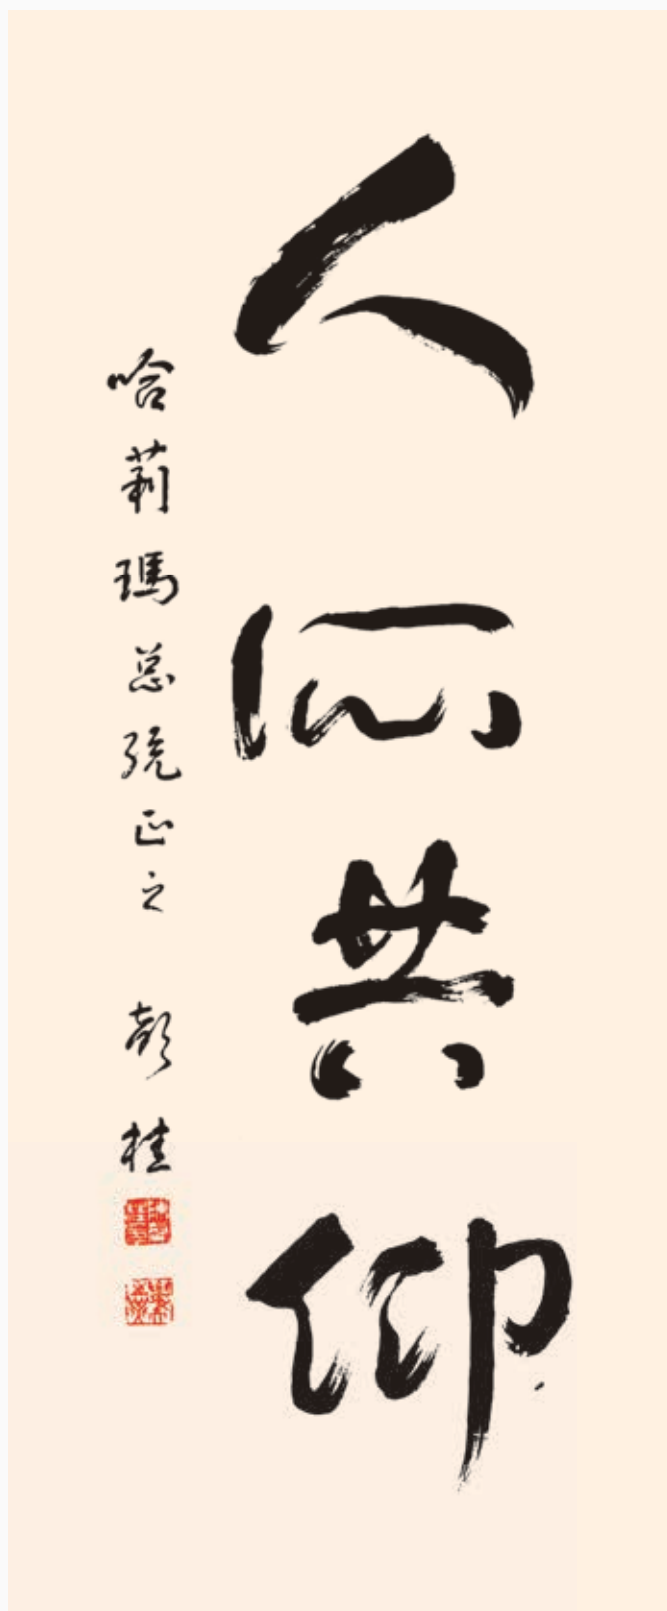 人所共仰
哈莉瑪总统正之 彭桂